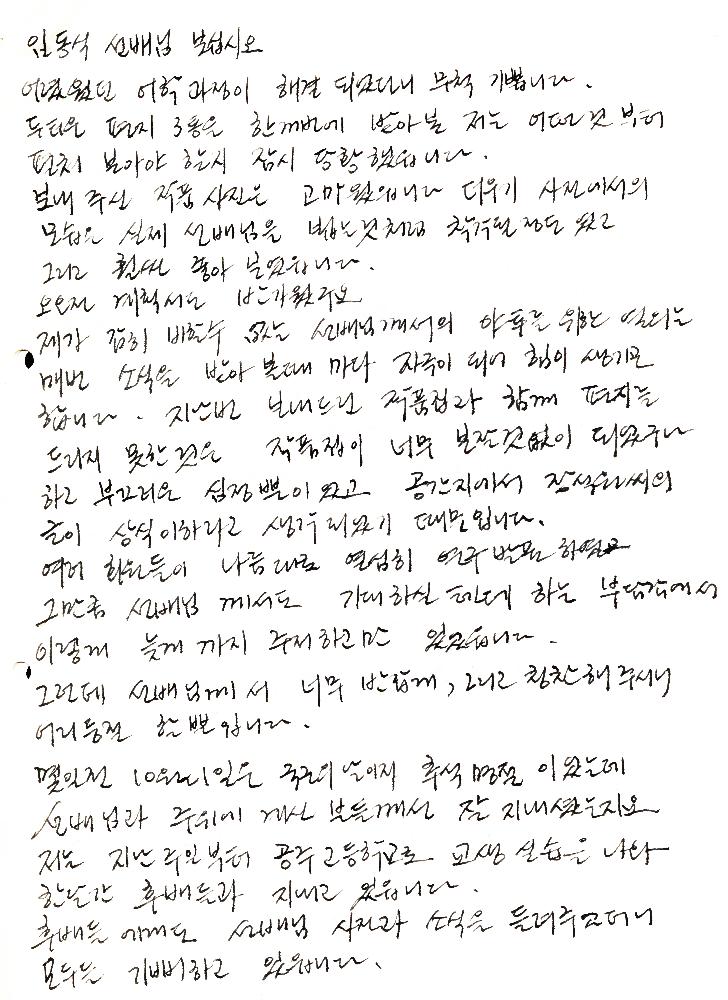 임동식 선배님 보십시오
어려웠던 어학과정이 해결 되었다니 무척 기쁩니다.
두터운 편지 3통을 한꺼번에 받아본 저는 어떤것 부터
먼저 보아야 할지 잠시 당황했읍니다.
보내 주신 작품 사진은 고마웠읍니다 더우기 사진에서의
모습은 실제 선배님을 뵙는것처럼 착각될 정도 였고
그리고 훨씬 좋아 보였읍니다.
오으전 계획서는 반가웠구요
제가 감히 비할수 없는 선배님께서의 야투를 위한 열의는
매번 소식을 받아 볼때 마다 자극이 되어 힘이 생기곤
합니다. 지난번 보내드린 작품집과 함께 편지를
드리지 못한것은 작품집이 너무 보잘것없이 되었구나
하고 부끄러운 심정뿐이었고 공간지에서 씨의
글이 상식이하라고 생각되었기 때문입니다.
여러 회원들이 나름대로 열심히 연구 발표 하였고
그만큼 선배님 께서도 기대하실 텐데 하는 부담감에서
이렇게 늦게 까지 주저하고만 있었읍니다.
그런데 선배님께서 너무 반갑게, 그리고 칭찬해 주시니
어리둥절 할뿐입니다.
몇일전 10월1일은 국군의날이자 추석 명절 이었는데
선배님과 주위에 계신 분들께선 잘 지내셨는지요
저는 지난주일부터 공주고등학교로 교생 실습을 나와
한달간 후배들과 지내고 있읍니다.
후배들 에게도 선배님 사진과 소식을 들려주었더니
모두들 기뻐하고 있읍니다.